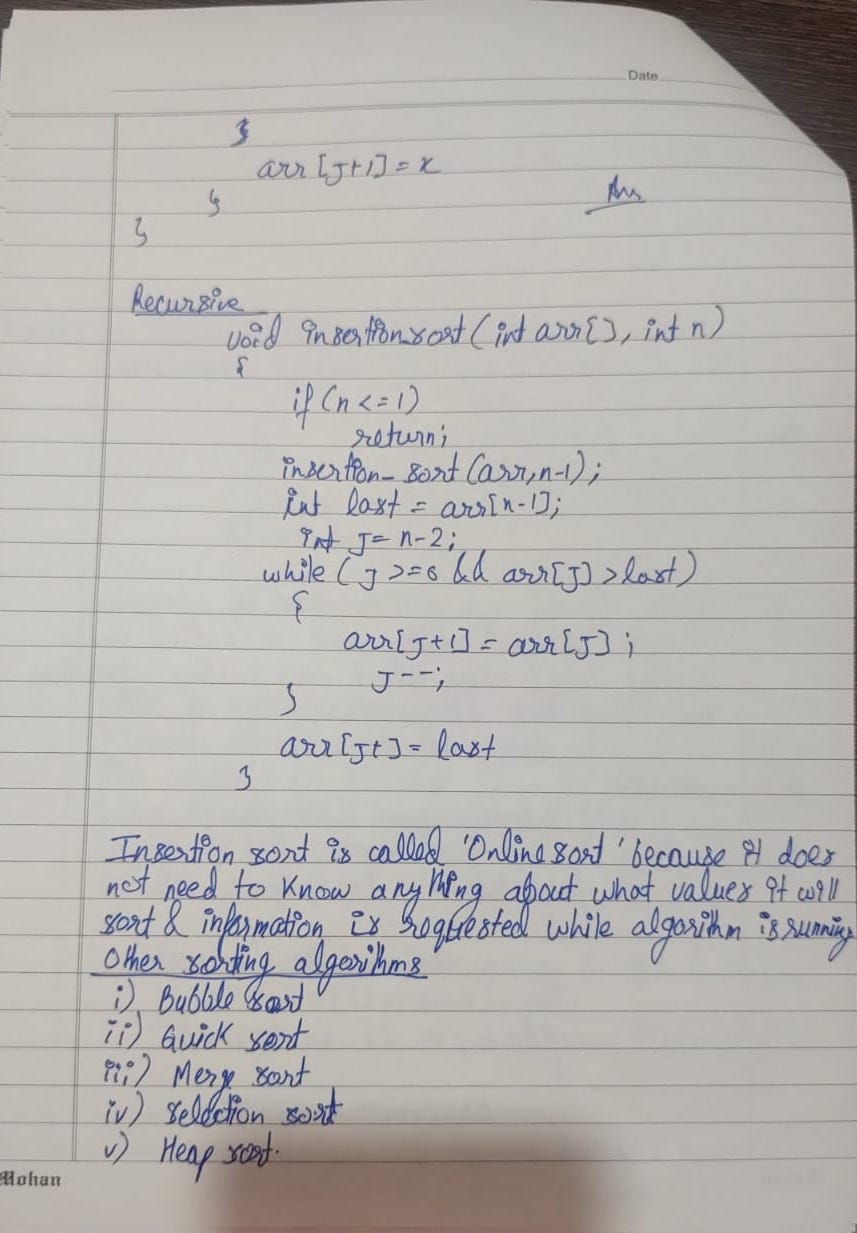 Date
}
arr[j+1]=x
}
Ans
}
Recursive
void insertionsort(int arr[], int n)
{
if (n<=1)
return;
insertion_sort(arr,n-1);
int last = arr[n-1];
int j= n-2;
while (j >=0 && arr[j] >last)
{
arr[j+1] = arr[j];
j--;
}
arr[j+]= last
}
Insertion sort is called 'Online sort' because it does
not need to know anything about what values it will
sort & information is requested while algorithm is running
Other sorting algorithms
i) Bubble sort
ii) Quick sort
iii) Merge sort
iv) Selection sort
v) Heap sort.
Mohan